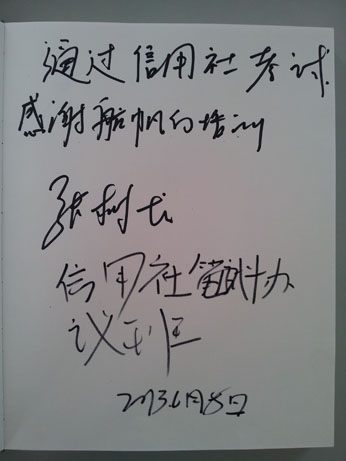 通过信用社考试
感谢航帆的培训
张树龙
信用社笔试协
议班
2013.6月8日